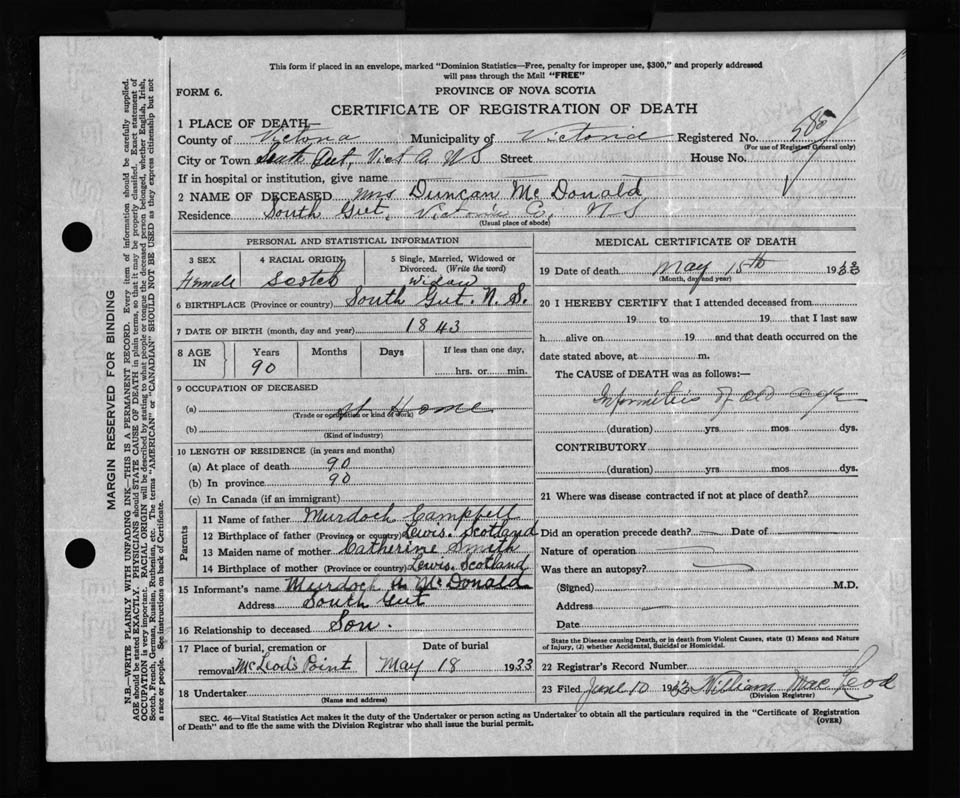 This form if placed in an envelope, marked "Dominion Statistics—Free, penalty for improper use, $300," and properly addressed
will pass through the Mail "FREE"
FORM 6.
PROVINCE OF NOVA SCOTIA
CERTIFICATE OF REGISTRATION OF DEATH
1 PLACE OF DEATH—
County of Victoria Municipality of Victoria Registered No.
(For use of Registrar General only)
City or Town South Gut, Vict Co. N S Street House No.
If in hospital or institution, give name
2 NAME OF DECEASED Mrs Duncan McDonald
Residence South Gut, Victoria Co, N S
(Usual place of abode)
PERSONAL AND STATISTICAL INFORMATION
3 SEX 4 RACIAL ORIGIN 5 Single, Married, Widowed or
Divorced. (Write the word)
Female Scotch Widow
6 BIRTHPLACE (Province or country) South Gut. N. S.
7 DATE OF BIRTH (month, day and year) 1843
8 AGE IN Years Months Days If less than one day,
90 hrs. or min.
9 OCCUPATION OF DECEASED
(a) At Home
(Trade or occupation or kind of work)
(b)
(Kind of industry)
10 LENGTH OF RESIDENCE (in years and months)
(a) At place of death 90
(b) In province 90
(c) In Canada (if an immigrant)
Parents
11 Name of father Murdoch Campbell
12 Birthplace of father (Province or country) Lewis. Scotland
13 Maiden name of mother Catherine Smith
14 Birthplace of mother (Province or country) Lewis. Scotland
15 Informant's name Murdoch McDonald
Address South Gut
16 Relationship to deceased Son.
17 Place of burial, cremation or Date of burial
removal McLeod's Point May 18 1933
18 Undertaker
(Name and address)
MEDICAL CERTIFICATE OF DEATH
19 Date of death May 15th 1933
(Month, day and year)
20 I HEREBY CERTIFY that I attended deceased from
19 to 19 that I last saw
h alive on 19 and that death occurred on the
date stated above, at m.
The CAUSE of DEATH was as follows:—
Infirmities of old age
(duration) yrs mos dys.
CONTRIBUTORY
(duration) yrs. mos dys.
21 Where was disease contracted if not at place of death?
Did an operation precede death? Date of
Nature of operation
Was there an autopsy?
(Signed) M.D.
Address
Date
State the Disease causing Death, or in death from Violent Causes, state (1) Means and Nature
of Injury, (2) whether Accidental, Suicidal or Homicidal.
22 Registrar's Record Number
23 Filed June 10 1933 William MacLeod
(Division Registrar)
SEC. 46—Vital Statistics Act makes it the duty of the Undertaker or person acting as Undertaker to obtain all the particulars required in the "Certificate of Registration
of Death" and to file the same with the Division Registrar who shall issue the burial permit. (OVER)
MARGIN RESERVED FOR BINDING
N.B.—WRITE PLAINLY WITH UNFADING INK—THIS IS A PERMANENT RECORD. Every item of information should be carefully supplied.
AGE should be stated EXACTLY. PHYSICIANS should STATE CAUSE OF DEATH in plain terms, so that it may be properly classified. Exact statement of
OCCUPATION is very important. RACIAL ORIGIN will be described by stating to what people or tongue the deceased person belonged, whether English, Irish,
Scotch, French, German, Russian, Ruthenian, etc. The terms "AMERICAN" or "CANADIAN" SHOULD NOT BE USED as they express citizenship but not
a race or people. See instructions on back of Certificate.